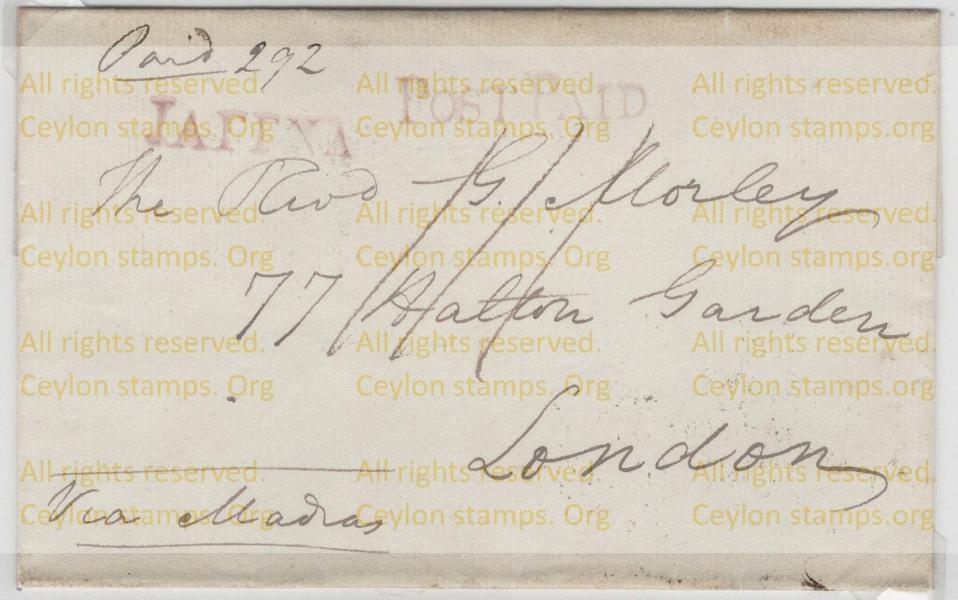 Paid 292
JAFFNA POST PAID
The Revd G. Morley
77 Hatton Garden
London
Via Madras
All rights reserved. All rights reserved. All rights reserved.
Ceylon stamps. Org Ceylon stamps. Org Ceylon stamps.org
All rights reserved. All rights reserved. All rights reserved.
Ceylon stamps. Org Ceylon stamps. Org Ceylon stamps. Org
All rights reserved. All rights reserved. All rights reserved.
Ceylon stamps. Org Ceylon stamps. Org Ceylon stamps. Org
All rights reserved. All rights reserved. All rights reserved.
Ceylon stamps. Org Ceylon stamps. Org Ceylon stamps.org